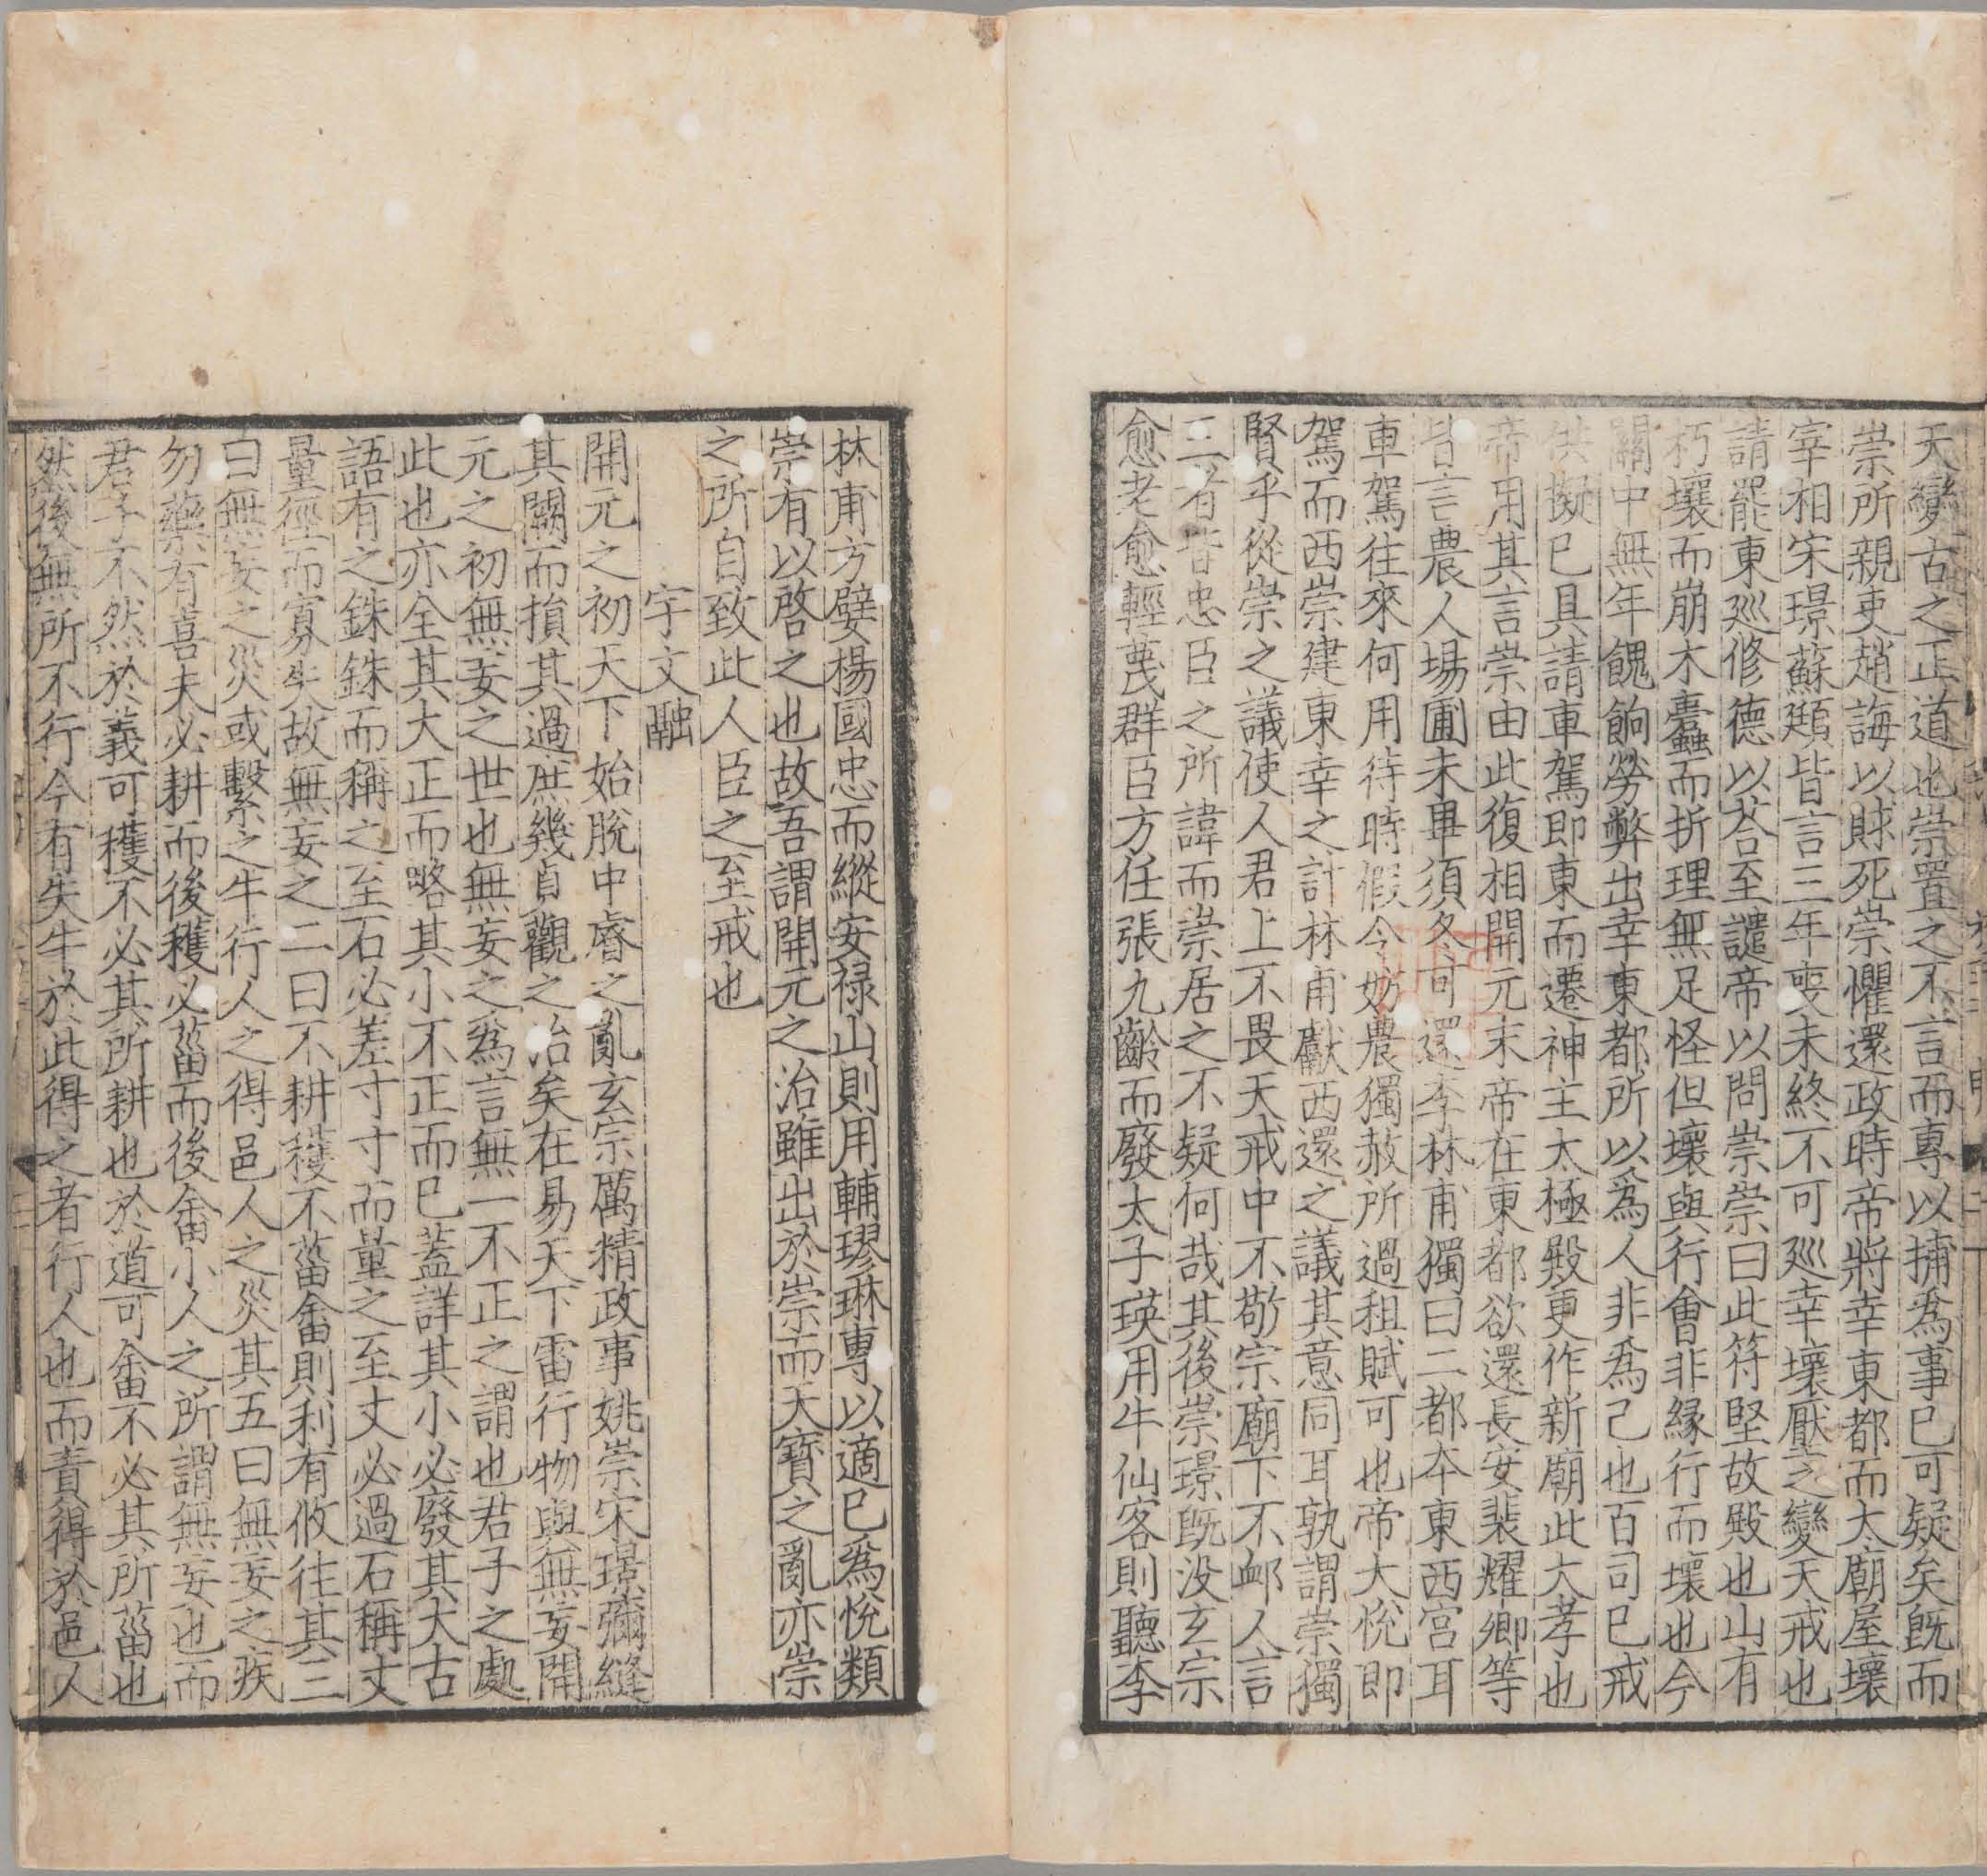 天變古之正道也崇置之不言而專以捕為事已可疑矣既而
崇所親吏趙誨以賕死崇懼還政時帝將幸東都而太廟屋壞
宰相宋璟蘇頲皆言三年喪未終不可廵幸壞壓之變天戒也
請罷東廵修德以荅至譴帝以問崇崇曰此苻堅故殿也山有
朽壤而崩木蠹蟲而折理無足怪但壞與行會非緣行而壞也今
關中無年餽餉勞弊出幸東都所以為人非為己也百司已戒
供擬已具請車駕即東而遷神主太極殿更作新廟此大孝也
帝用其言崇由此復相開元末帝在東都欲還長安裴耀卿等
皆言農人場圃未畢須冬可還李林甫獨曰二都夲東西宮耳
車駕往來何用待時假令妨農獨赦所過租賦可也帝大悅即
駕而西崇建東幸之計林甫獻西還之議其意同耳孰謂崇獨
賢乎從崇之議使人君上不畏天戒中不敬宗廟下不䘏人言
三者皆忠臣之所諱而崇居之不疑何哉其後崇璟既没玄宗
愈老愈輕蔑群臣方任張九齡而廢太子瑛用牛仙客則聽李
林甫方嬖楊國忠而縱安禄山則用輔璆琳專以適已為悅類
崇有以啓之也故吾謂開元之治雖出於崇而天寶之亂亦崇
之所自致此人臣之至戒也
宇文融
開元之初天下始脫中睿之亂玄宗厲精政事姚崇宋璟彌縫
其闕而損其過庶幾貞觀之治矣在易天下雷行物與無妄開
元之初無妄之世也無妄之為言無一不正之謂也君子之處
此也亦全其大正而略其小不正而已蓋詳其小必廢其大古
語有之銖銖而稱之至石必差寸寸而量之至丈必過石稱丈
量徑而寡失故無妄之二曰不耕穫不菑畬則利有攸往其三
曰無妄之災或繫之牛行人之得邑人之災其五曰無妄之疾
勿藥有喜夫必耕而後穫必菑而後畬小人之所謂無妄也而
君子不然於義可穫不必其所耕也於道可畬不必其所菑也
然後無所不行今有失牛於此得之者行人也而責得於邑人